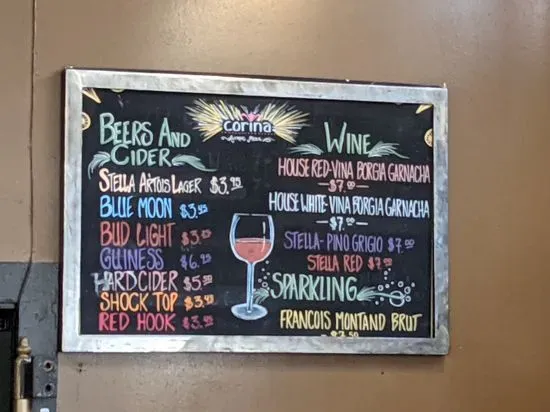 corina
BEERS AND
CIDER
STELLA ARTOIS LAGER $3.95
BLUE MOON $3.95
BUD LIGHT
GUINESS $6.95
HARD CIDER
SHOCK TOP $3.95
RED HOOK $3.95
WINE
HOUSE RED-VINA BORGIA GARNACHA
-$7.00-
HOUSE WHITE-VINA BORGIA GARNACHA
-$7.00-
STELLA-PINO GRIGIO $7.00
STELLA RED $7.00
SPARKLING
FRANCOIS MONTAND BRUT
$7.50